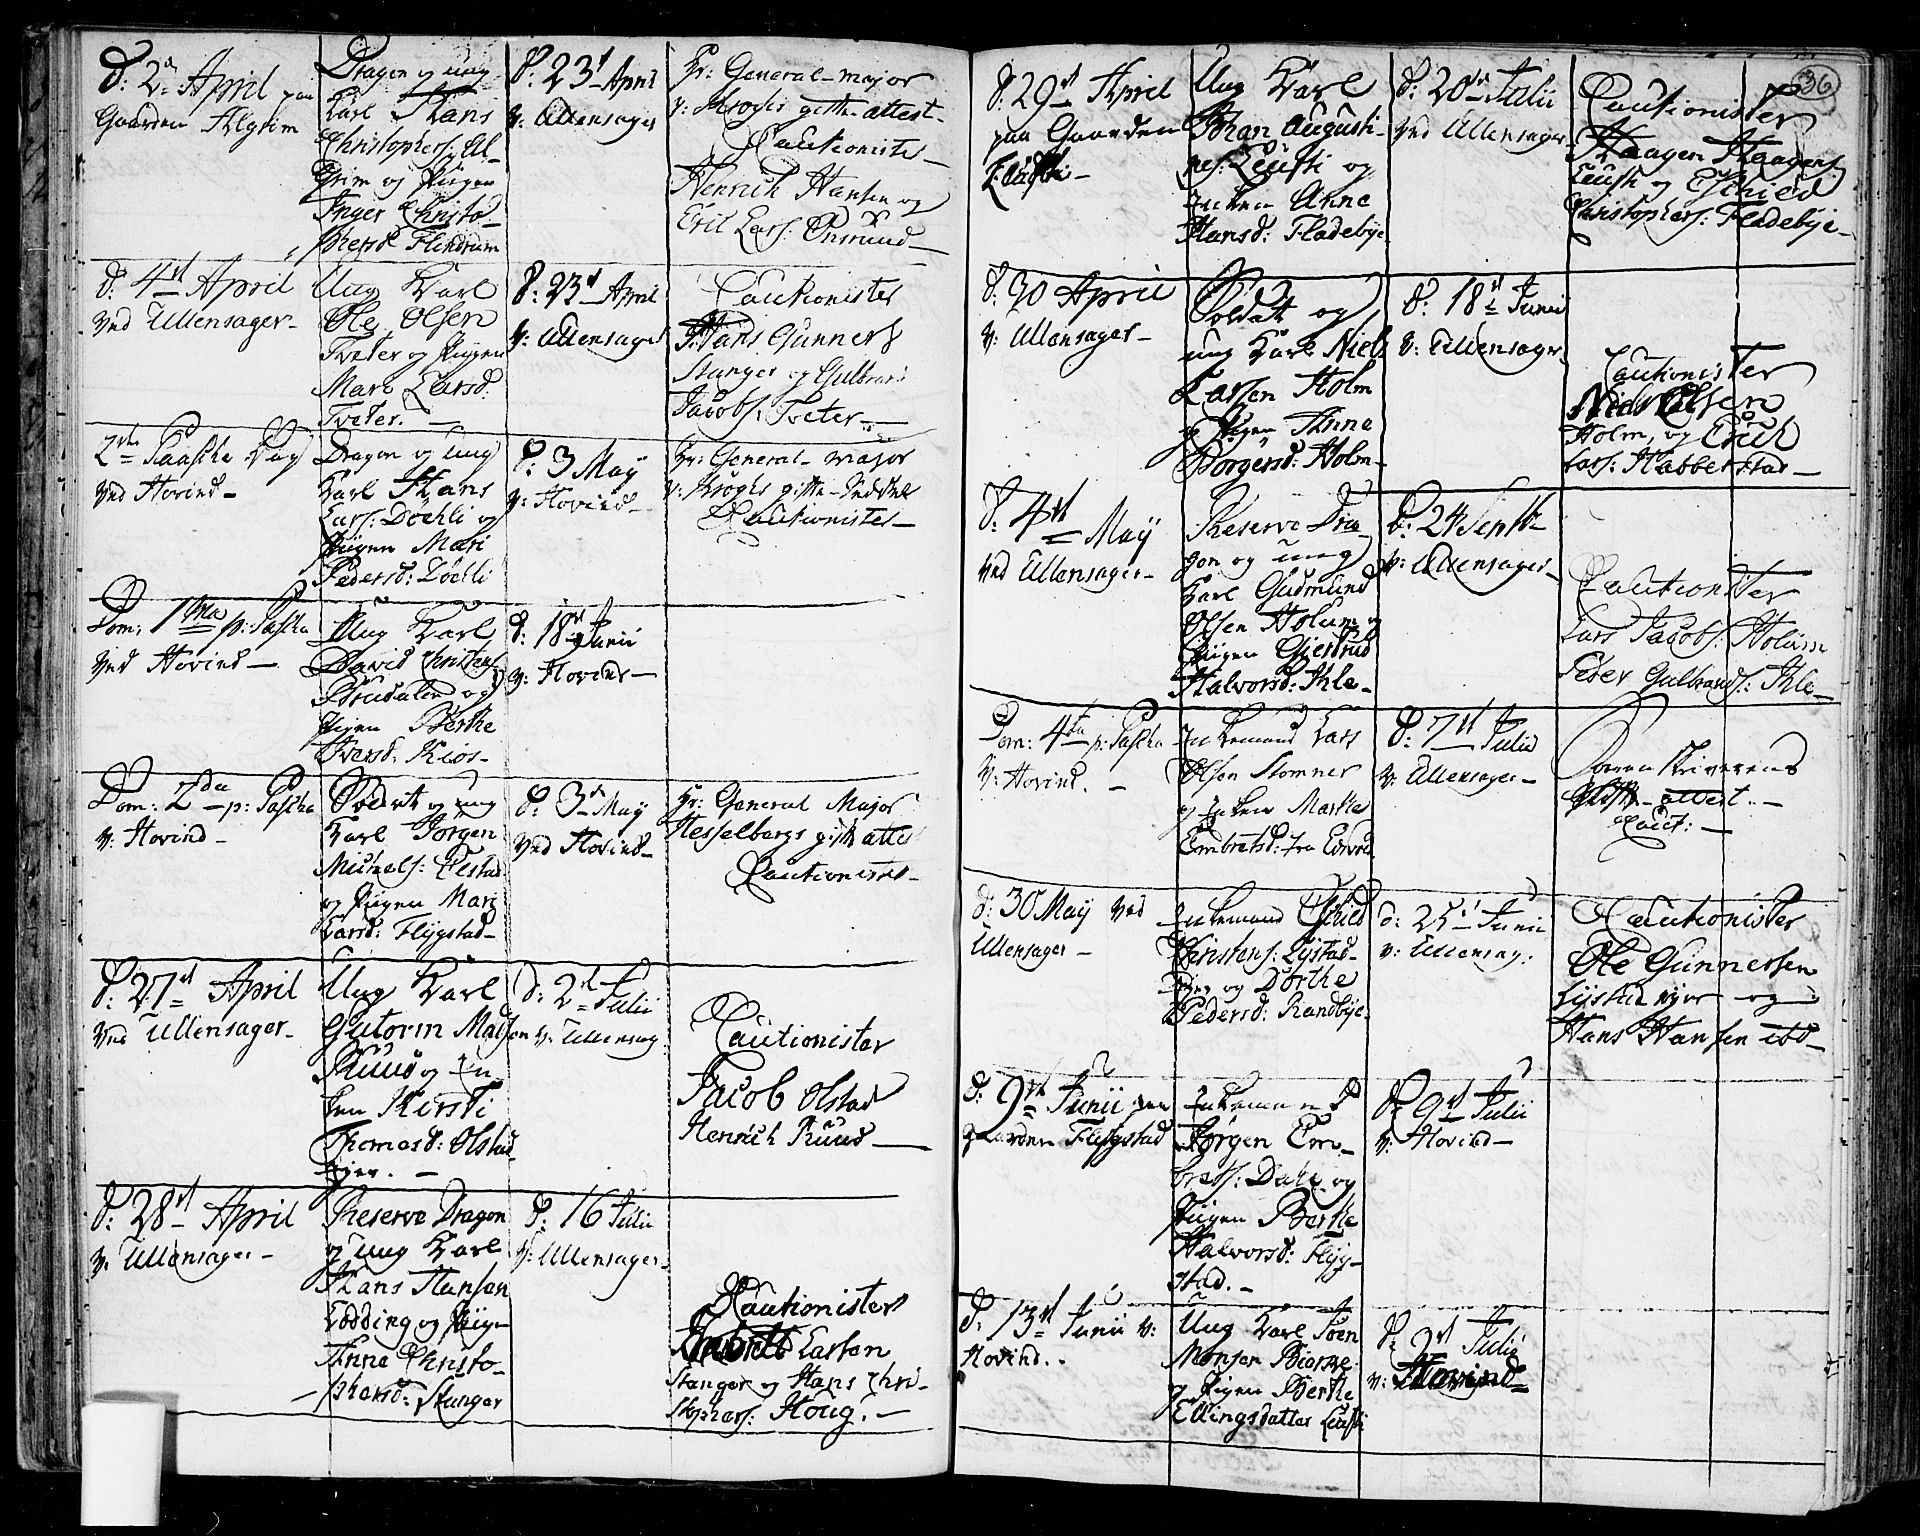 d: 2den April paa
Gaarden Algrim
Dragon og ung
Karl Hans
Christophers: Al-
grim og Pigen
Inger Christo-
phersd: Flindrum
d: 23d April
v: Ullensager
Hr: General-major
v: Kroghs gifte-attest-
Cautionister
Henrich Hansen og
Eric Lars: Onsrud-
d: 4st April
ved Ullensager-
Ung Karl
Ole Olsen
Tveter og Pigen
Mari Larsd:
Tveter. -
d: 23d April
v: Ullensager
Cautionister
Hans Gunners
Stanger og Gulbran
Jacobs: Tveter-
2den Paasche Dag
ved Hovind-
Dragon og ung
Karl Hans
Lars: Døehli og
Pigen Mari
Pedersd: Døehli
d: 3 May
v: Hovind-
Hr: General-major
v: Kroghs gifte-Seddel
Cautionister-
Dom: 1ma p: Pascha
ved Hovind-
Ung Karl
David Christens
og
Pigen Berthe
Iversd: Kios-
d: 18d Junii
v: Hovind-
Dom: 2da p: Pascha
v: Hovind-
Soldat og ung
Karl Jørgen
Michels:
og Pigen Mari
Larsd: Flygstad-
d: 3d May
ved Hovind-
Hr: General Major
Hesselbergs gifte attest
Cautionister-
d: 27st April
ved Ullensager-
Ung Karl
Gutorm Madsen
Ruud og En-
ken Kirsti
Thomasd: Olstad
Eyer. -
d: 2d Julii
v: Ullensag:
Cautionister
Jacob Olstad
Henrich Ruud-
d: 28st April
v: Ullensager-
Reserve Dragon
og Ung Karl
Hans Hansen
Lodding og Pigen
Anne Christo-
phersd: Stanger
d: 16 Julii
v: Ullensager-
Cautionister
Larsen
Stanger og Hans Chri-
stophers: Houg. -
36
d: 29st April
paa Gaarden
Leusti-
Ung Karl
Johan Augusti-
nes: Leusti og
Enken Anne
Hansd: Fladebye
d: 20de Julii
ved Ullensager
Cautionister
Haagen Haagens
Leusti og
Christophers: Fladebye-
d: 30 April
v: Ullensager-
Soldat og
ung Karl Niels
Larsen Holm
og Pigen Anne
Borgersd: Holm-
d: 18st Junii
v: Ullensager
Cautionister
Niels Olsen
Holm, og Erich
Lars: Habberstad-
d: 4st May
ved Ullensager-
Reserve Dra-
gon og ung
Karl Gudmund
Olsen Holum og
Pigen Giertrud
Halvorsd: Ihle-
d: 24 Septb-
v: Ullensager-
Cautionister
Lars Jacobs: Holum
Peder Gulbrands: Ihle-
Dom: 4ta p: Pascha
v: Hovind. -
Enkemand Lars
Olsen Stomner
og Enken Marthe
Embretsd: fra
d: 7st Julii
v: Ullensager-
Soren Skriverens
attest. -
Caut: -
d: 30 May ved
Ullensager-
Enkemand
Christens: Lystad-
Eyer og Dorthe
Pedersd: Randbye-
d: 25st Junii
v: Ullensag:
Cautionister
Ole Gunnersen
Lystad eyer - og
Hans Hansen ibd-
d: 9st Junii paa
Gaarden Flygstad
Enkemand
Jørgen Em-
brets: Dahl og
Pigen Berthe
Halvorsd: Flyg-
stad. -
d: 9st Julii
v: Hovind-
d: 13st Junii v:
Hovind. -
Ung Karl Soren
Monsen Bierke
og Pigen Berthe
Ellingsdatter Leusti
d: 2st Julii
v: Hovind-